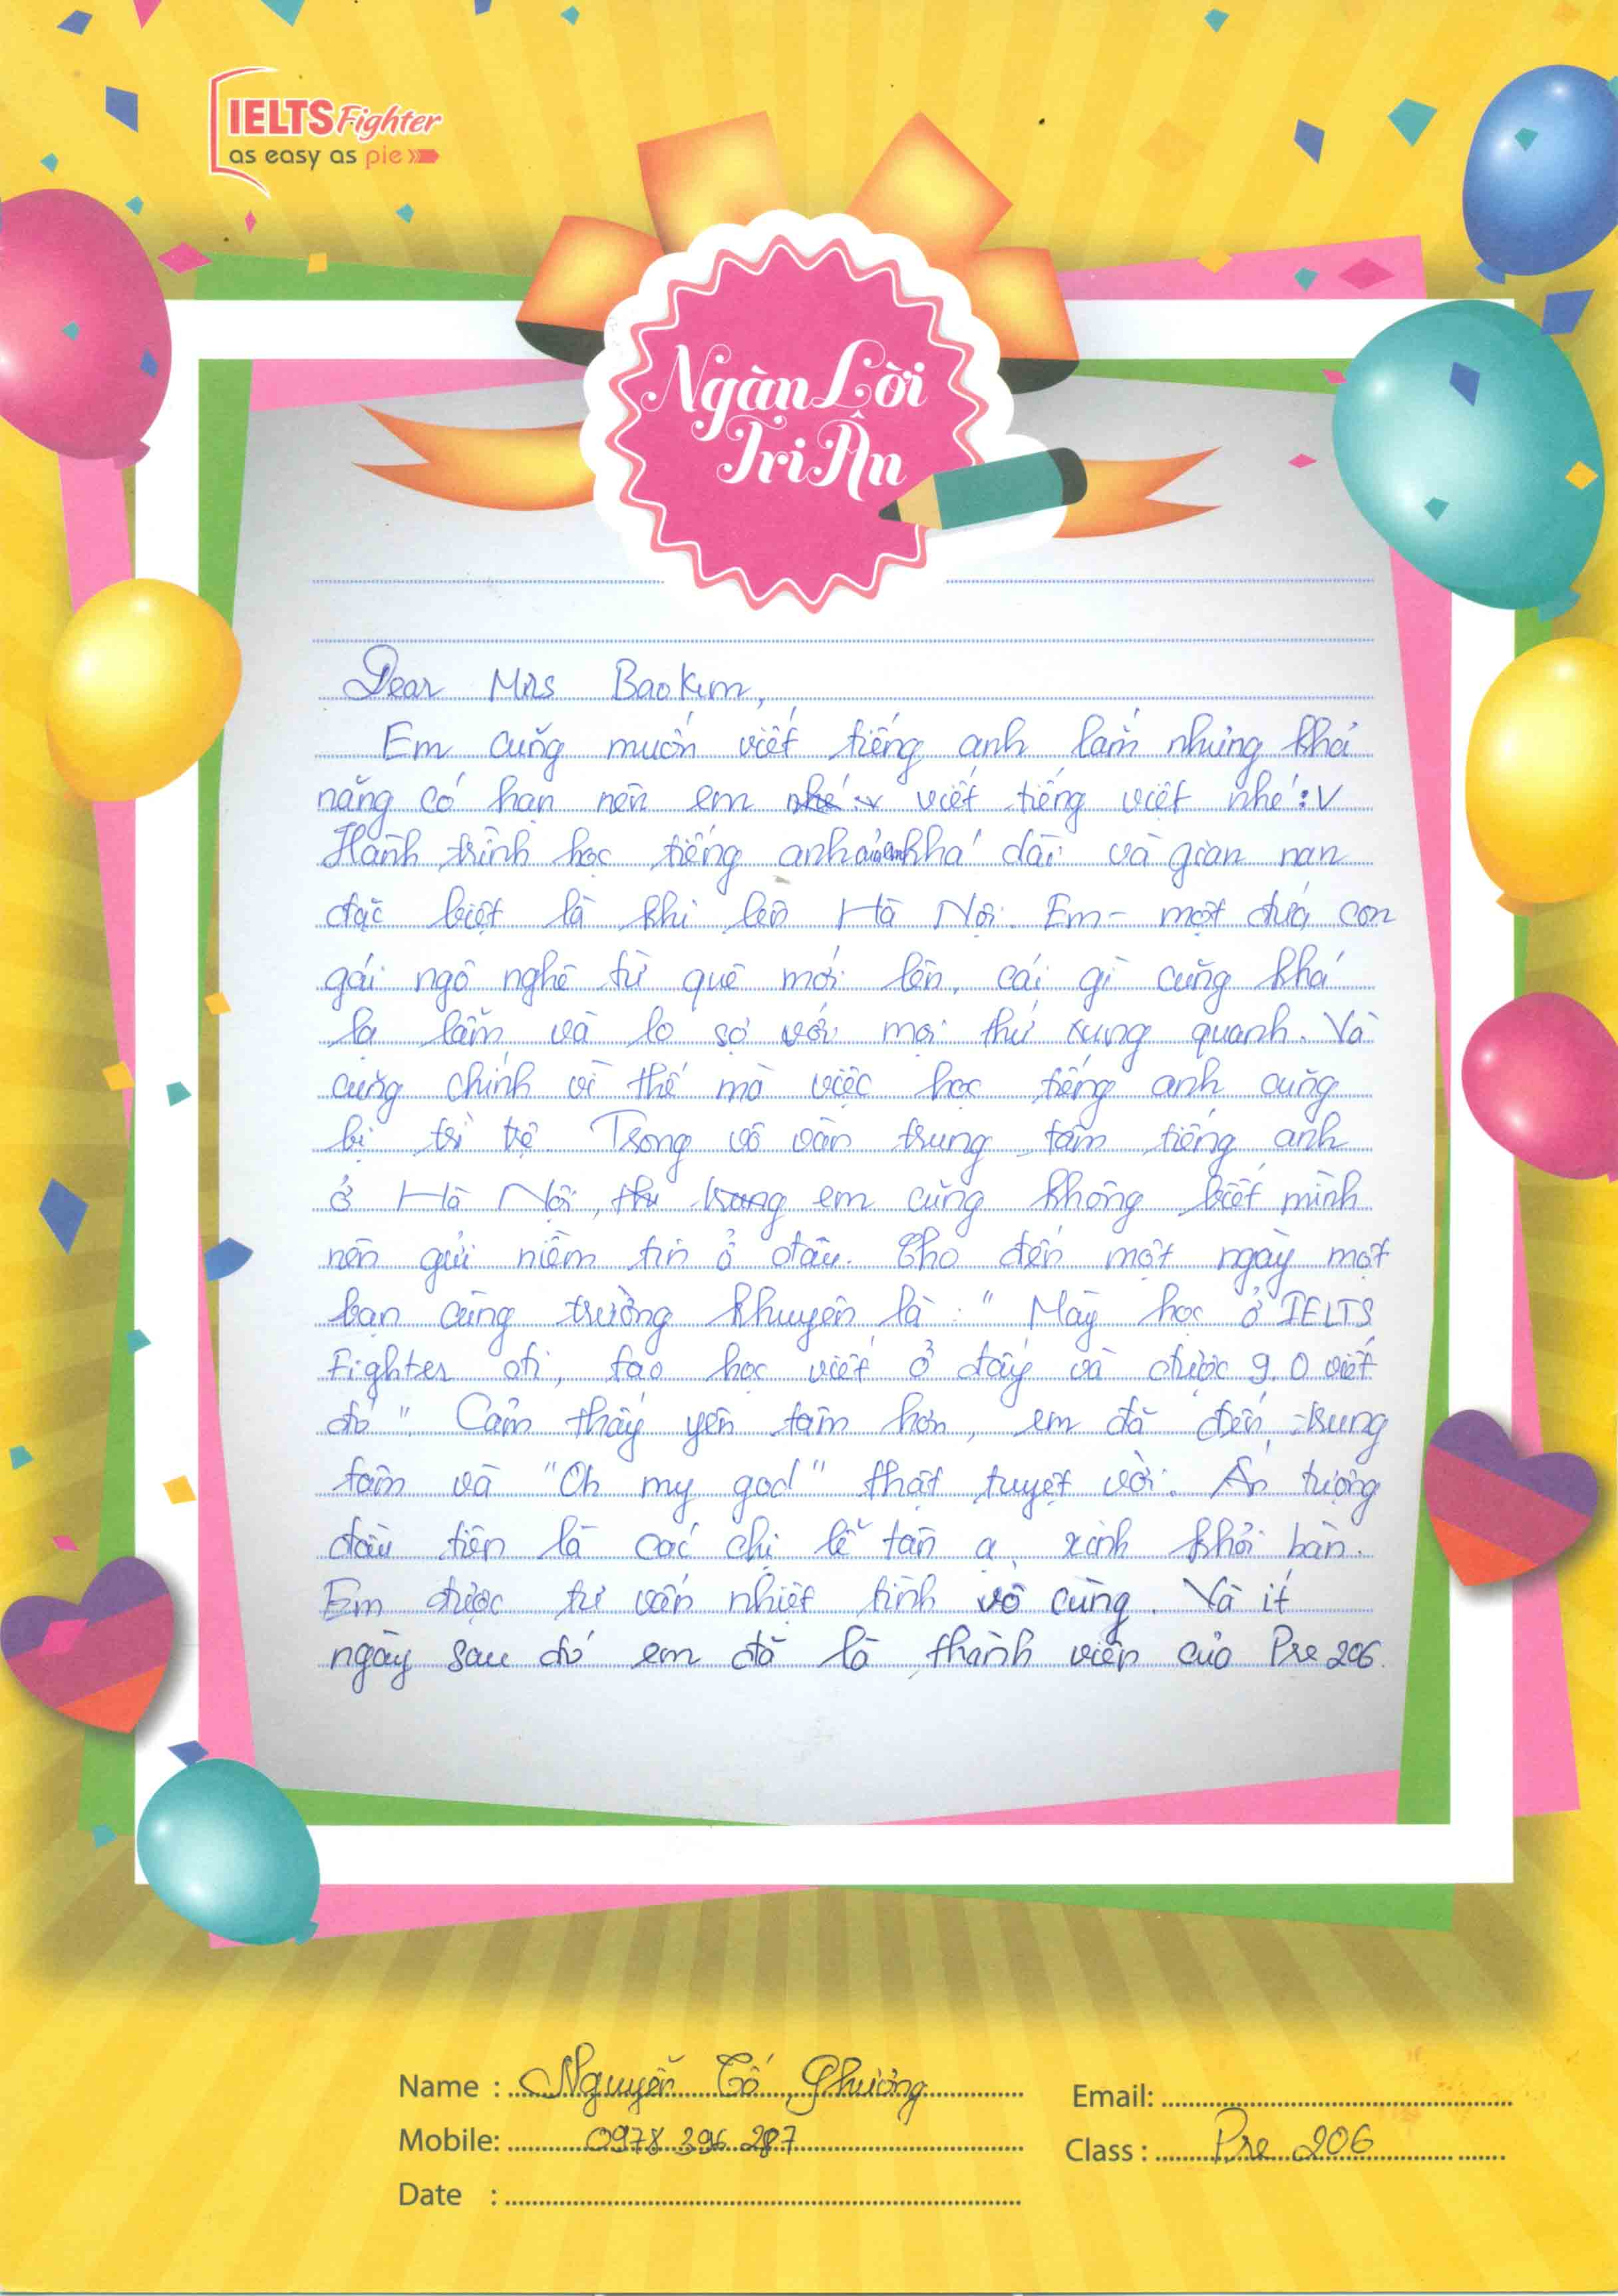 IELTS Fighter
as easy as pie
Ngàn Lời
Tri Ân
Dear Mrs Bao Kim,
Em cũng muốn viết tiếng anh lắm nhưng khả
năng có hạn nên em nhé :v viết tiếng việt nhé :V
Hành trình học tiếng anh của em khá dài và gian nan
đặc biệt là khi lên Hà Nội. Em - một đứa con
gái ngô nghê từ quê mới lên, cái gì cũng khá
lạ lẫm và lo sợ với mọi thứ xung quanh. Và
cũng chính vì thế mà việc học tiếng anh cũng
bị trì trệ. Trong vô vàn trung tâm tiếng anh
ở Hà Nội, thì trong em cũng không biết mình
nên gửi niềm tin ở đâu. Cho đến một ngày một
bạn cùng trường khuyên là: "Mày học ở IELTS
Fighter đi, tao học viết ở đấy và được 9.0 viết
đó". Cảm thấy yên tâm hơn, em đã đến trung
tâm và "Oh my god" thật tuyệt vời. Ấn tượng
đầu tiên là các chị lễ tân ạ, xinh khỏi bàn.
Em được tư vấn nhiệt tình vô cùng. Và ít
ngày sau đó em đã là thành viên của Pre 206.
Name : Nguyễn Tố Phương
Email:
Mobile: 0978 396 287
Class : Pre 206
Date :